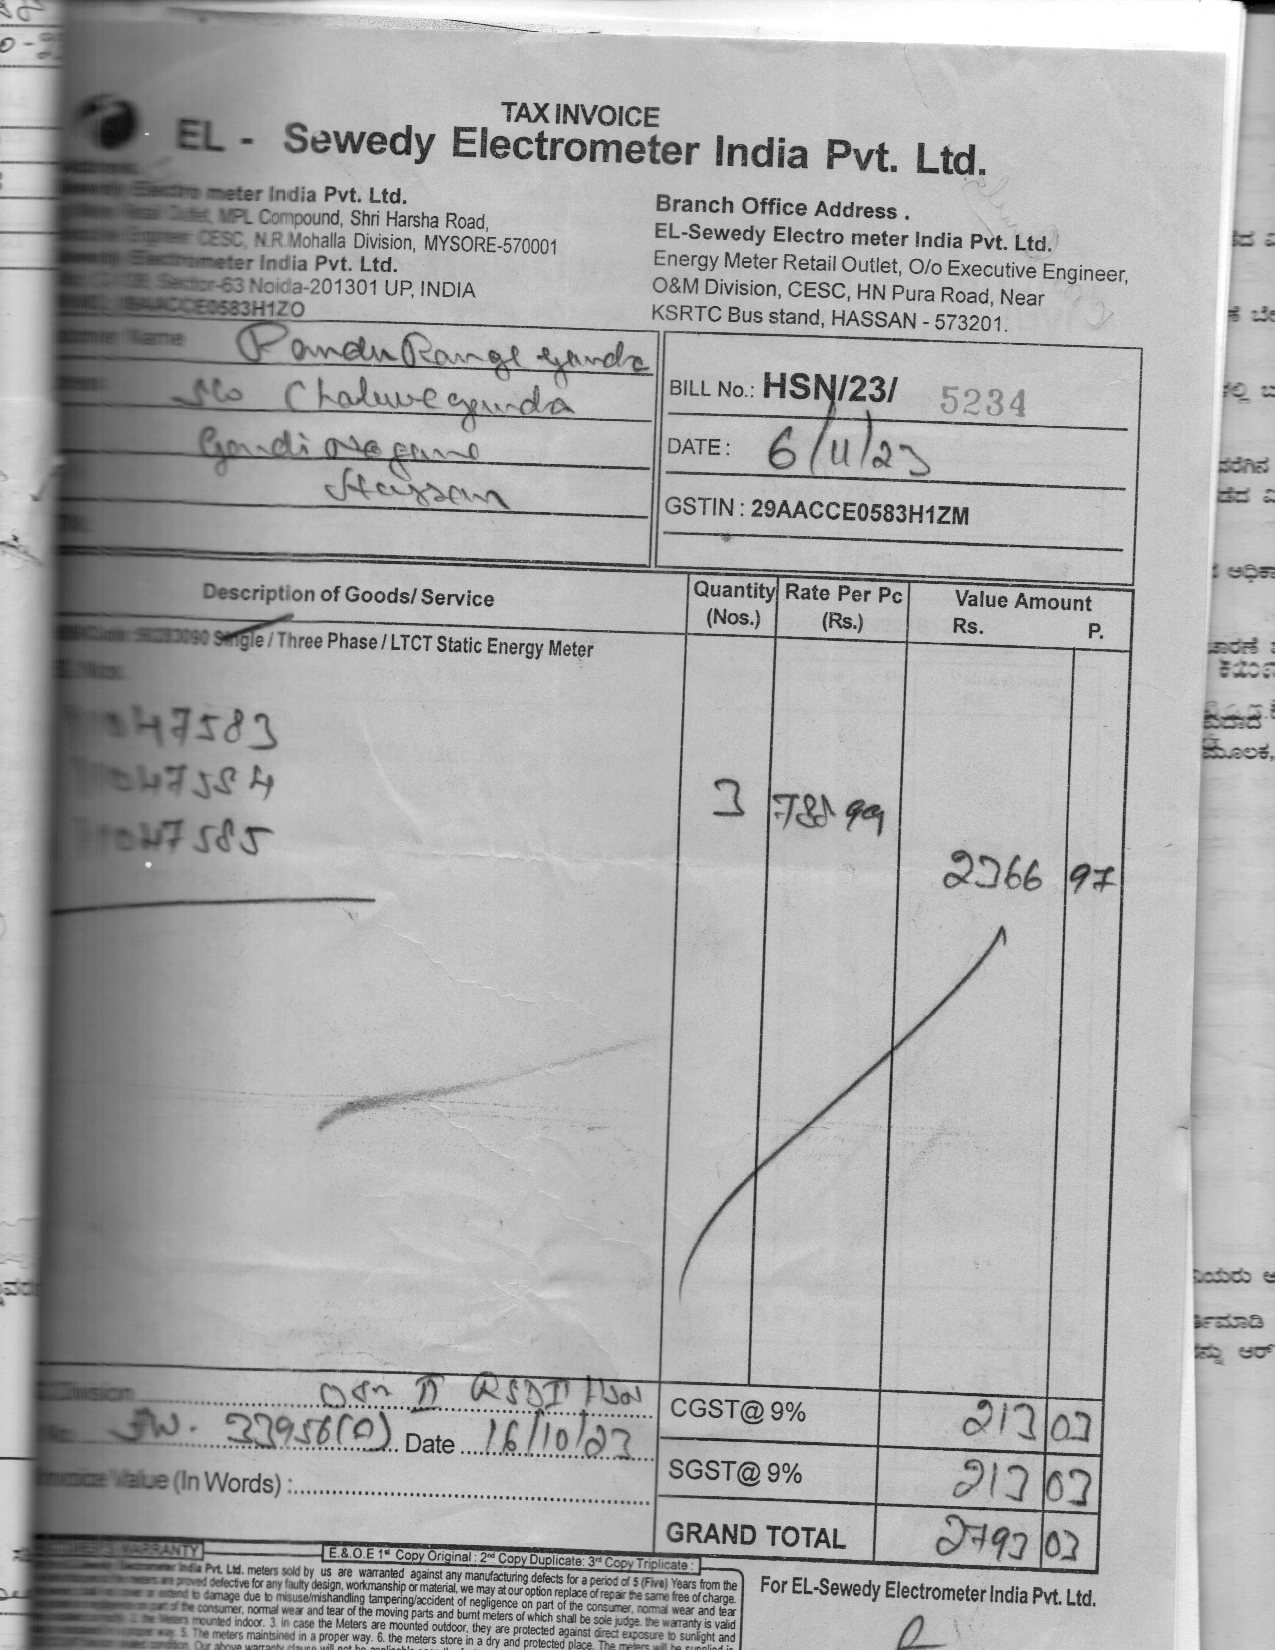 TAX INVOICE
EL - Sewedy Electrometer India Pvt. Ltd.
Electro meter India Pvt. Ltd.
MPL Compound, Shri Harsha Road,
CESC, N.R.Mohalla Division, MYSORE-570001
Electrometer India Pvt. Ltd.
Sector-63 Noida-201301 UP, INDIA
Branch Office Address .
EL-Sewedy Electro meter India Pvt. Ltd.
Energy Meter Retail Outlet, O/o Executive Engineer,
O&M Division, CESC, HN Pura Road, Near
KSRTC Bus stand, HASSAN - 573201.
Name Pandu Range gowda
S/o Chaluvegowda
Hassan
BILL No.: HSN/23/ 5234
DATE : 6/11/23
GSTIN : 29AACCE0583H1ZM
Description of Goods/ Service
Quantity (Nos.)
Rate Per Pc (Rs.)
Value Amount
Rs. P.
Single / Three Phase / LTCT Static Energy Meter
047583
047584
047585
3 788 99
2366 97
II RSDT HSN
33956(A) Date 16/10/23
Value (In Words) :
CGST@ 9% 213 03
SGST@ 9% 213 03
GRAND TOTAL 2793 03
WARRANTY
E.&.O.E 1st Copy Original : 2nd Copy Duplicate: 3rd Copy Triplicate :
India Pvt. Ltd. meters sold by us are warranted against any manufacturing defects for a period of 5 (Five) Years from the
defective for any faulty design, workmanship or material, we may at our option replace of repair the same free of charge.
to damage due to misuse/mishandling tampering/accident of negligence on part of the consumer, normal wear and tear
the consumer, normal wear and tear of the moving parts and burnt meters of which shall be sole judge. the warranty is valid
mounted indoor. 3. in case the Meters are mounted outdoor, they are protected against direct exposure to sunlight and
5. The meters maintsined in a proper way. 6. the meters store in a dry and protected place. The meters will be supplied in
For EL-Sewedy Electrometer India Pvt. Ltd.